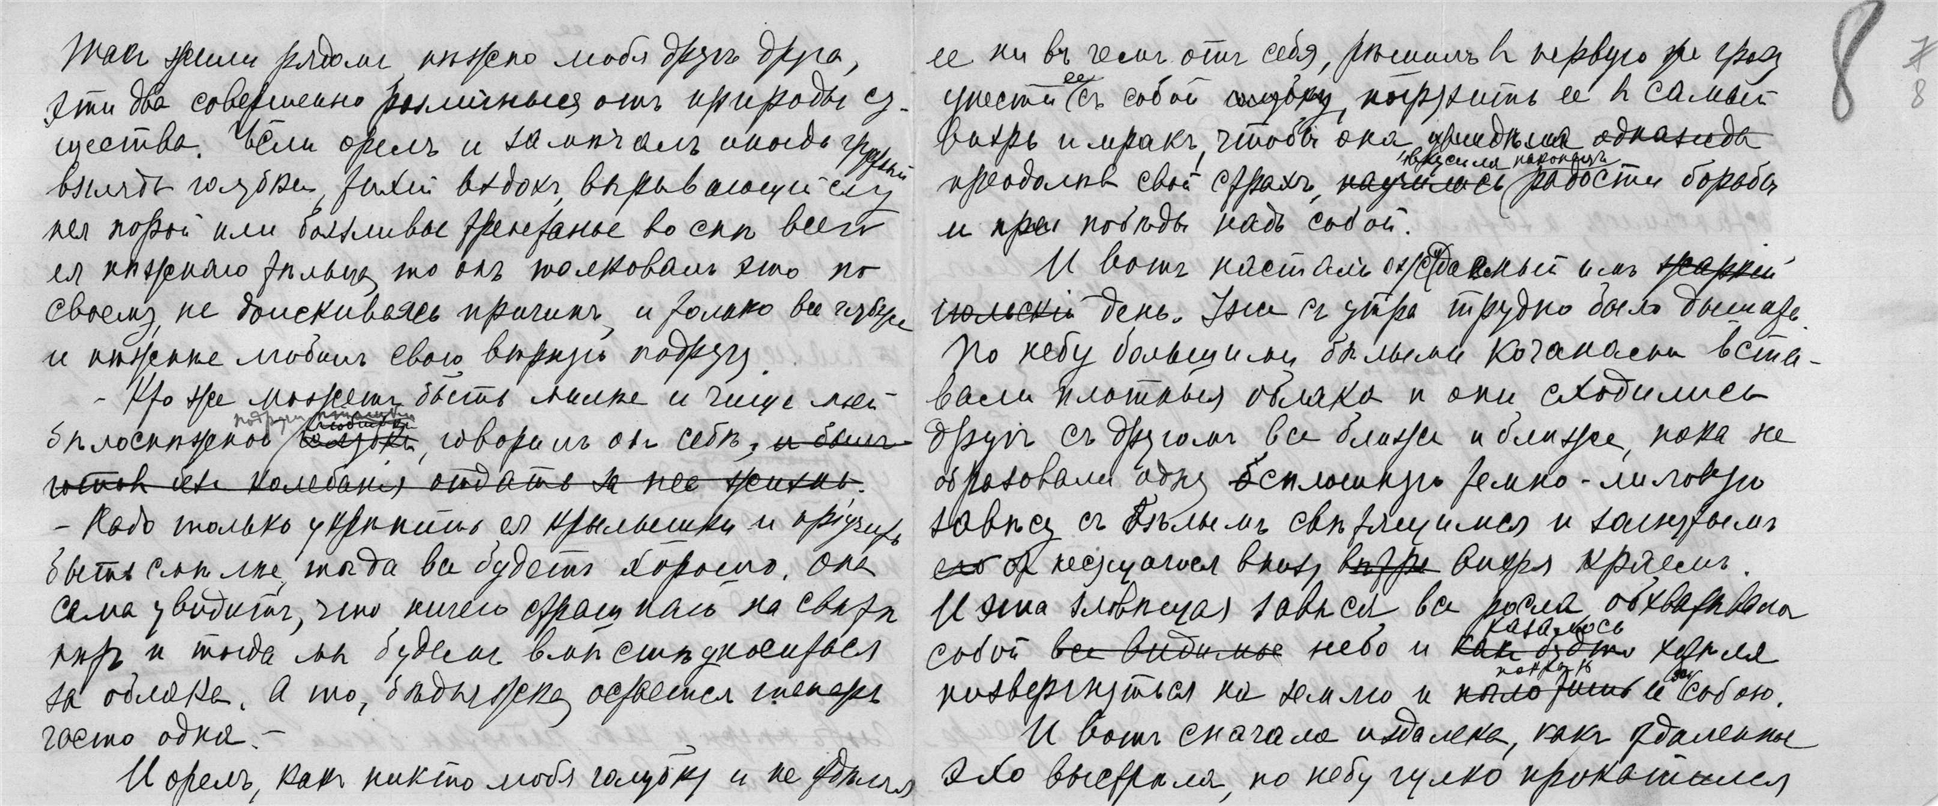 Такъ жили рядомъ, нѣжно любя другъ друга,
эти два совершенно различныя отъ природы су-
щества. Если орелъ и замѣчалъ иногда грустный
взглядъ голубки, тихій вздохъ, вырывающійся у
нея порой или боязливое трепетанье во снѣ всего
ея нѣжнаго тѣльца, то онъ толковалъ это по
своему, не доискиваясь причинъ, и только все глубже
и нѣжнѣе любилъ свою вѣрную подругу.
- Кто же можетъ быть милѣе и чище моей
бѣлоснѣжной подруги голубки, говорилъ онъ себѣ, и былъ
готовъ безъ колебанія отдать за нее жизнь.
- Надо только укрѣпить ея крылышки и пріучить
быть смѣлѣе, тогда все будетъ хорошо. Она
сама увидитъ, что ничего страшнаго на свѣтѣ
нѣтъ и тогда мы будемъ вмѣстѣ уноситься
за облака. А то, бѣдняжка, остается теперь
часто одна. -
И орелъ, какъ никто любя голубку и не отдѣляя
8
7
8
ее ни въ чемъ отъ себя, рѣшилъ въ первую же грозу
унести ее съ собой голубку, погрузить ее въ самый
вихрь и мракъ, чтобы она увидѣла однажды
преодолѣвъ свой страхъ, научилась вкусила наконецъ радости борьбы
и побѣды надъ собой.
И вотъ насталъ ожидаемый имъ жаркій
іюльскій день. Уже съ утра трудно было дышать.
По небу большими бѣлыми кочанами вста-
вали плотныя облака и они сходились
другъ съ другомъ все ближе и ближе, пока не
образовали одну сплошную темно-лиловую
завѣсу съ бѣлымъ свѣтящимся и загнутымъ
отъ несущагося внизу вѣтра вихря краемъ.
И эта зловѣщая завѣса все росла, обхватывала
собой все видимое небо и какъ будто казалось хотѣла
низвергнуться на землю и собою.
И вотъ сначала издалека, какъ отдаленное
эхо выстрѣла, по небу гулко прокатился